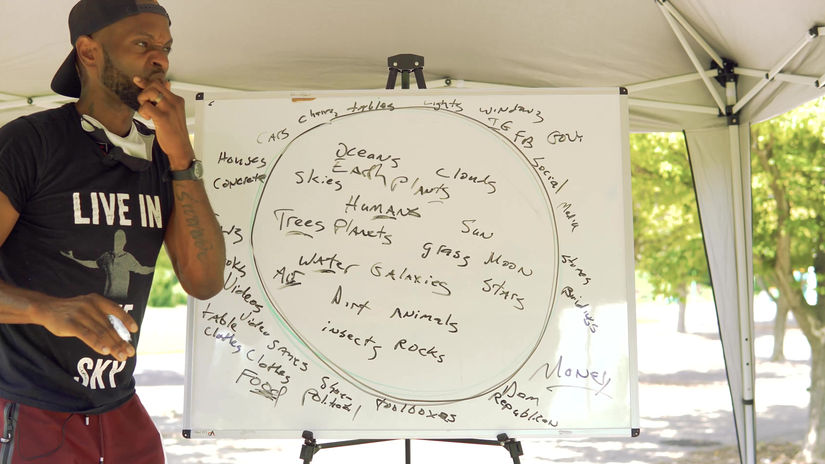 Chairs tables Lights windows
CARS IG FB GOV
Houses Social
Concrete Media
Oceans
Earth Plants Clouds
Skies
Humans
Trees Plants Sun
grass Moon
Water Galaxies Stars
Air Dirt Animals
insects Rocks
Videos Video games
table
Clothes Clothes
FOOD
Political toolboxes
Stores
Buildings
Money
Dem
Republican
LIVE IN
SKY